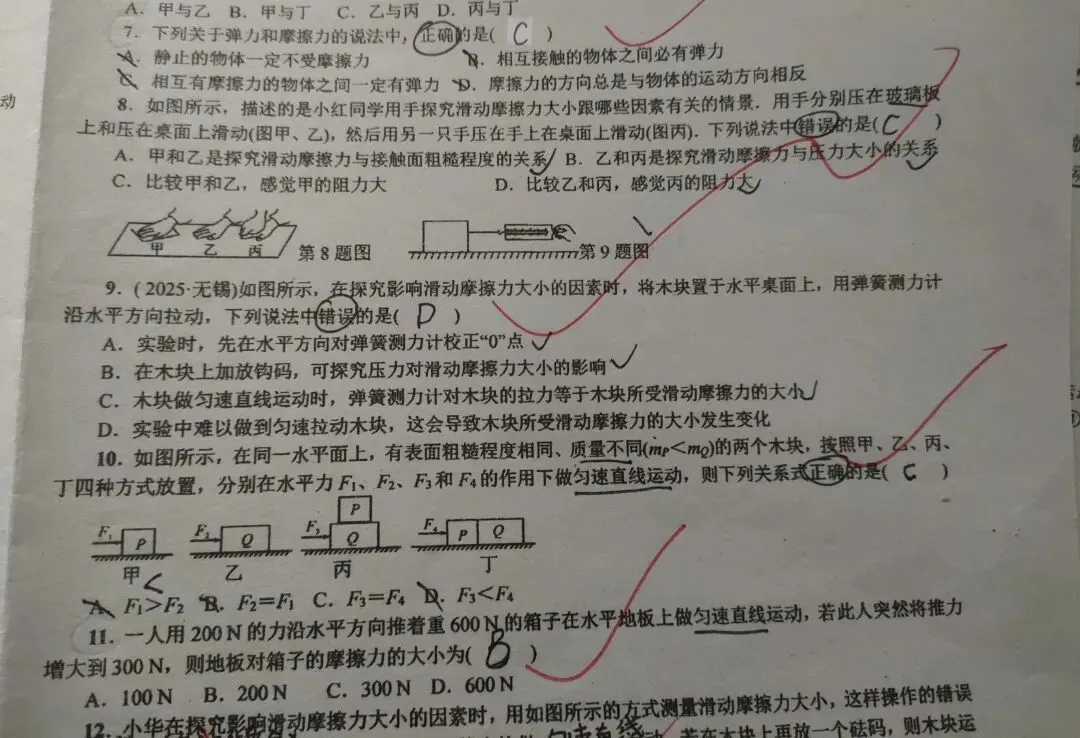 A. 甲与乙 B. 甲与丁 C. 乙与丙 D. 丙与丁
7. 下列关于弹力和摩擦力的说法中，正确的是( C )
A. 静止的物体一定不受摩擦力 B. 相互接触的物体之间必有弹力
C. 相互有摩擦力的物体之间一定有弹力 D. 摩擦力的方向总是与物体的运动方向相反
动
8. 如图所示，描述的是小红同学用手探究滑动摩擦力大小跟哪些因素有关的情景. 用手分别压在玻璃板
上和压在桌面上滑动(图甲、乙)，然后用另一只手压在手上在桌面上滑动(图丙). 下列说法中错误的是( C )
A. 甲和乙是探究滑动摩擦力与接触面粗糙程度的关系 B. 乙和丙是探究滑动摩擦力与压力大小的关系
C. 比较甲和乙，感觉甲的阻力大 D. 比较乙和丙，感觉丙的阻力大
甲 乙 丙 第8题图 第9题图
9. ( 2025·无锡)如图所示，在探究影响滑动摩擦力大小的因素时，将木块置于水平桌面上，用弹簧测力计
沿水平方向拉动，下列说法中错误的是( D )
A. 实验时，先在水平方向对弹簧测力计校正“0”点
B. 在木块上加放钩码，可探究压力对滑动摩擦力大小的影响
C. 木块做匀速直线运动时，弹簧测力计对木块的拉力等于木块所受滑动摩擦力的大小
D. 实验中难以做到匀速拉动木块，这会导致木块所受滑动摩擦力的大小发生变化
10. 如图所示，在同一水平面上，有表面粗糙程度相同、质量不同(mP<mQ)的两个木块，按照甲、乙、丙、
丁四种方式放置，分别在水平力 F1、F2、F3 和 F4 的作用下做匀速直线运动，则下列关系式正确的是( C )
F1 P F2 Q F3 P Q F4 P Q
甲 乙 丙 丁
<
A. F1>F2 B. F2=F1 C. F3=F4 D. F3<F4
11. 一人用 200 N 的力沿水平方向推着重 600 N 的箱子在水平地板上做匀速直线运动，若此人突然将推力
增大到 300 N，则地板对箱子的摩擦力的大小为( B )
A. 100 N B. 200 N C. 300 N D. 600 N
12. 小华在探究影响滑动摩擦力大小的因素时，用如图所示的方式测量滑动摩擦力大小，这样操作的错误
若在木块上再放一个砝码，则木块运